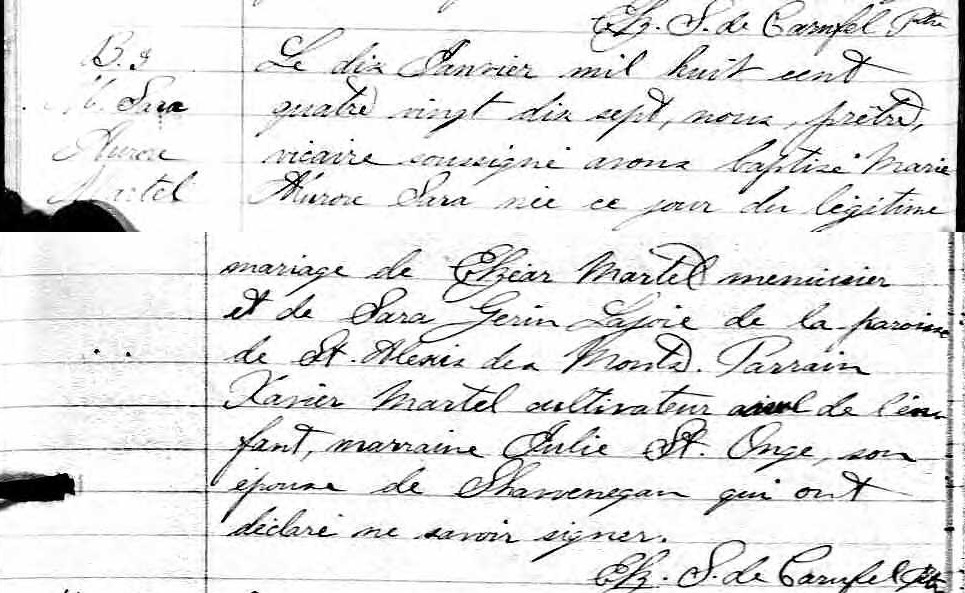 Elz. S. de Carufel Ptre
B. 3
M. Sara
Aurore
Martel
Le dix Janvier mil huit cent
quatre vingt dix sept, nous, prêtre,
vicaire soussigné avons baptisé Marie
Aurore Sara née ce jour du légitime
mariage de Elzéar Martel menuisier
et de Sara Gerin Lajoie de la paroisse
de St. Alexis des Monts. Parrain
Xavier Martel cultivateur aieul de l'en-
fant, marraine Julie St. Onge, son
épouse de Shawenegan qui ont
déclaré ne savoir signer.
Elz. S. de Carufel Ptre